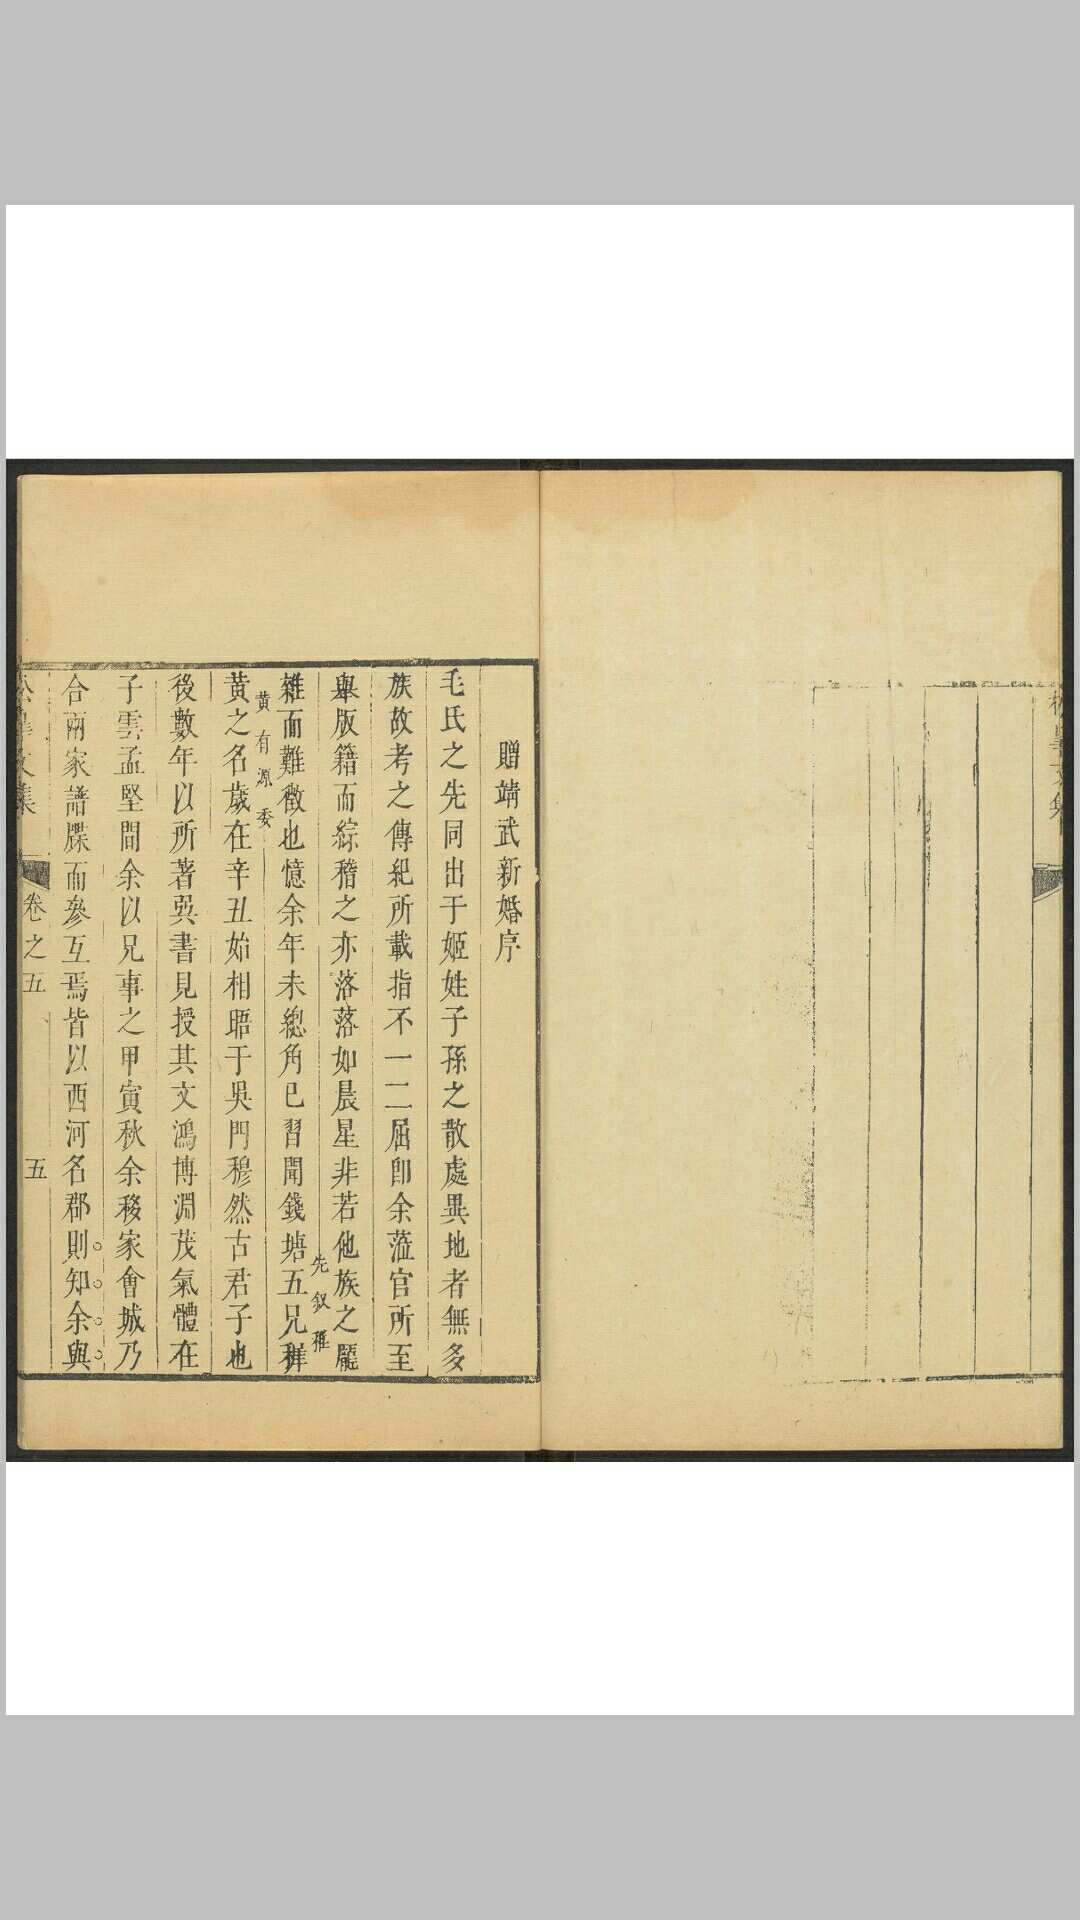 贈靖武新婚序
毛氏之先同出于姬姓子孫之散處異地者無多
族故考之傳紀所載指不一二屈卽余蒞官所至
舉版籍而綜稽之亦落落如晨星非若他族之龎
先叙雅
雜而難徵也憶余年未總角已習聞錢塘五兄稺
黃有源委
黄之名歲在辛丑始相晤于吳門穆然古君子也
後數年以所著巽書見授其文鴻博淵茂氣體在
子雲孟堅間余以兄事之甲寅秋余移家會城乃
合兩家譜牒而參互焉皆以西河名郡則知余與
文集
卷之五
五